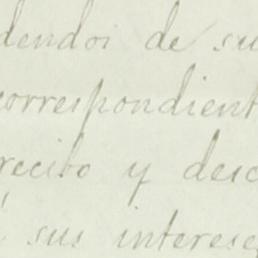 dendoi de su
correspondient
recibo y desc
sus interese